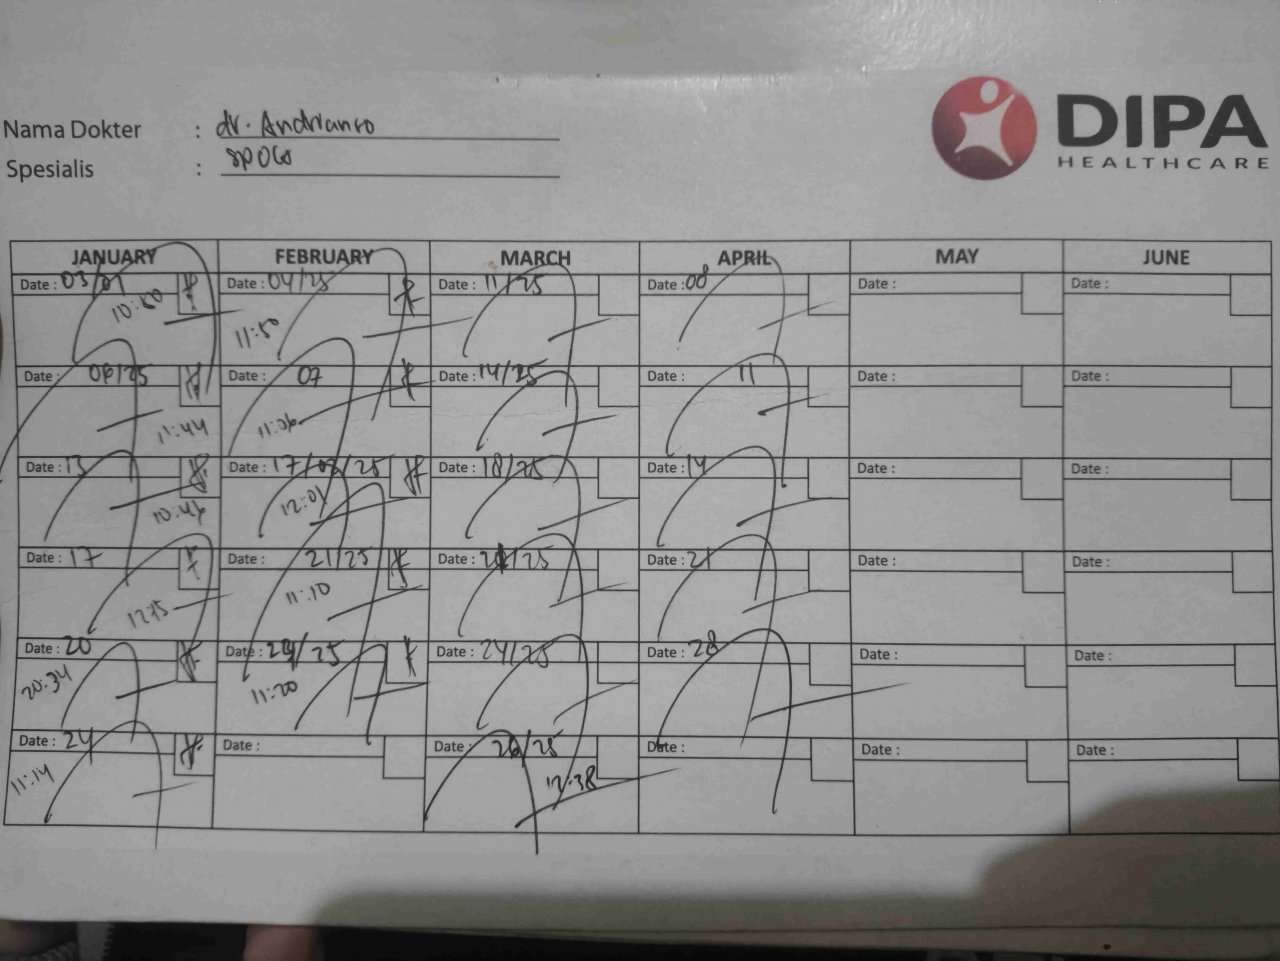 Nama Dokter : dr. Andrianro
Spesialis : SpOG
DIPA
HEALTHCARE
JANUARY FEBRUARY MARCH APRIL MAY JUNE
Date : 03/01 Date : 04/25 Date : 11/25 Date : 08 Date : Date :
10:50 11:50
Date : 06/25 Date : 07 Date : 14/25 Date : 11 Date : Date :
11:44 11:06
Date : 13 Date : 17/02/25 Date : 18/25 Date : 14 Date : Date :
10:46 12:01
Date : 17 Date : 21/25 Date : 21/25 Date : 21 Date : Date :
1275 11:10
Date : 20 Date : 24/25 Date : 24/25 Date : 28 Date : Date :
20:34 11:20
Date : 24 Date : Date : 26/25 Date : Date : Date :
11:14 12:38